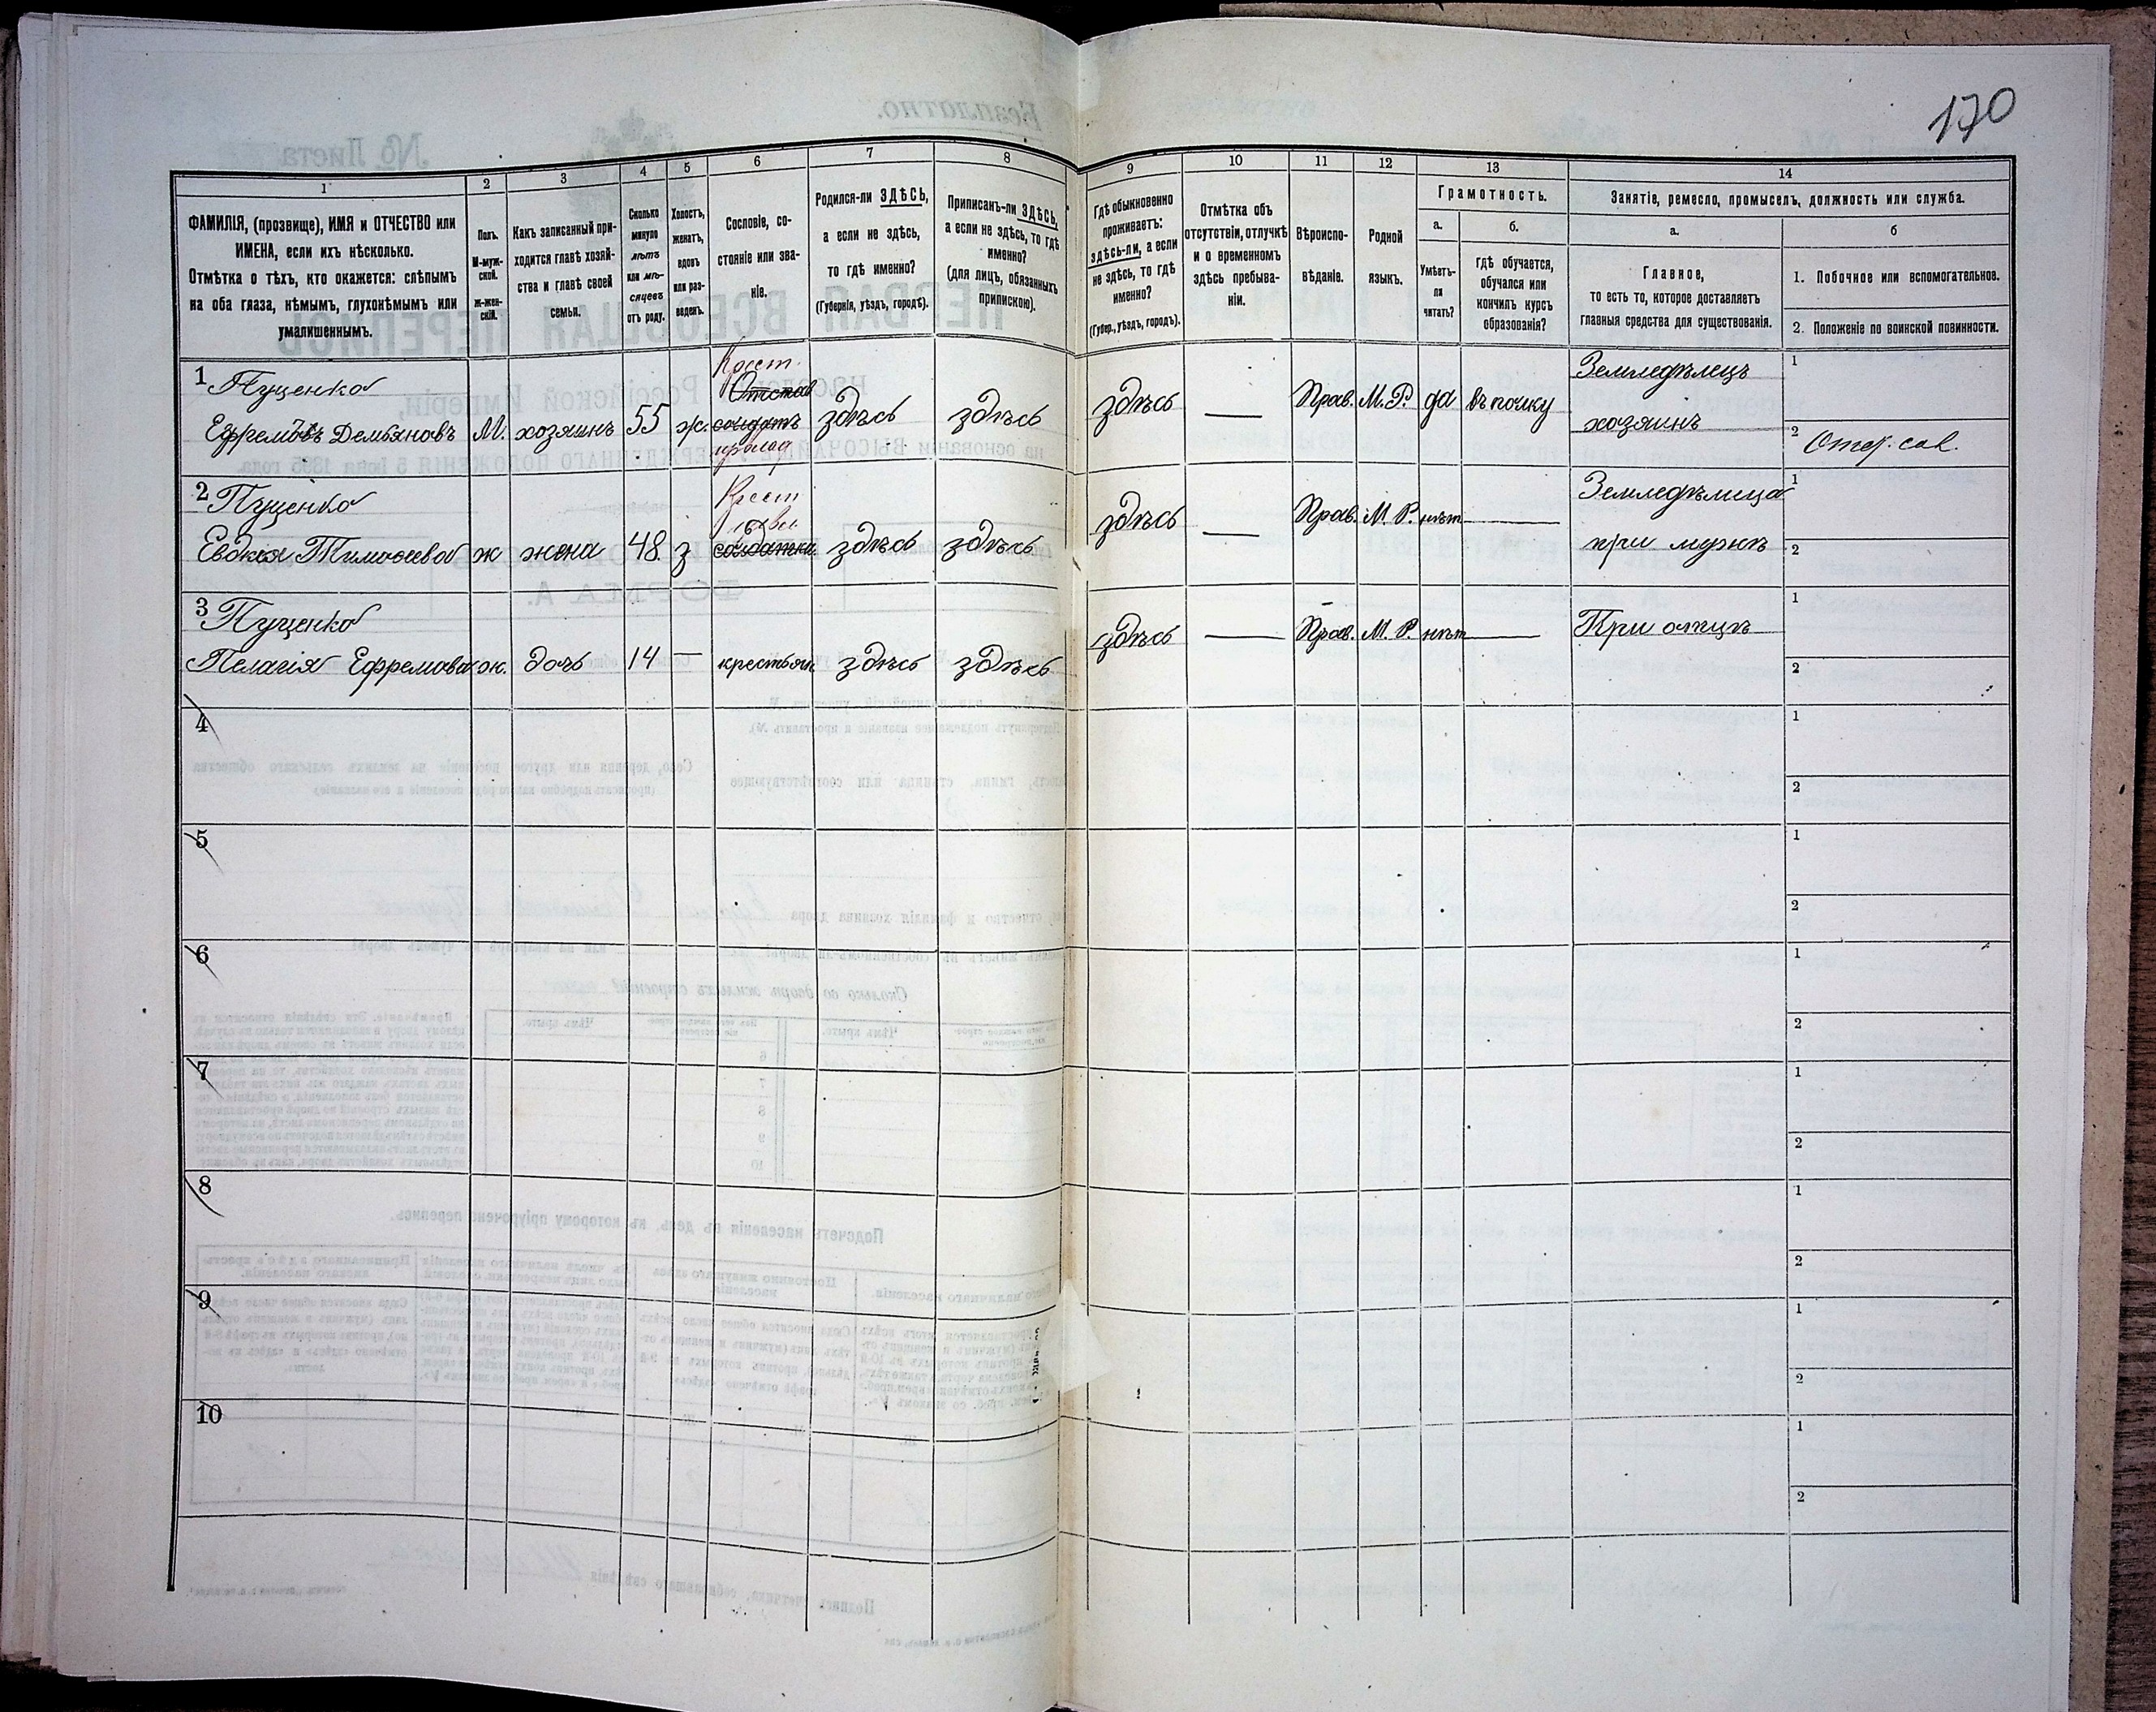 170
1
2
3
4
5
6
7
8
9
10
11
12
13
14
ФАМИЛІЯ, (прозвище), ИМЯ и ОТЧЕСТВО или
ИМЕНА, если ихъ нѣсколько.
Отмѣтка о тѣхъ, кто окажется: слѣпымъ
на оба глаза, нѣмымъ, глухонѣмымъ или
умалишеннымъ.
Полъ.
М-муж-
ской.
ж-жен-
скій.
Какъ записанный при-
ходится главѣ хозяй-
ства и главѣ своей
семьи.
Сколько
минуло
лѣтъ
или мѣ-
сяцевъ
отъ роду.
Холостъ,
женатъ,
вдовъ
или раз-
веденъ.
Сословіе, со-
стояніе или зва-
ніе.
Родился-ли ЗДѢСЬ,
а если не здѣсь,
то гдѣ именно?
(Губернія, уѣздъ, городъ).
Приписанъ-ли ЗДѢСЬ,
а если не здѣсь, то гдѣ
именно?
(для лицъ, обязанныхъ
припискою).
Гдѣ обыкновенно
проживаетъ:
здѣсь-ли, а если
не здѣсь, то гдѣ
именно?
(Губер., уѣздъ, городъ).
Отмѣтка объ
отсутствіи, отлучкѣ
и о временномъ
здѣсь пребыва-
ніи.
Вѣроиспо-
вѣданіе.
Родной
языкъ.
Грамотность.
а.
Умѣетъ-
ли
читать?
б.
Гдѣ обучается,
обучался или
кончилъ курсъ
образованія?
Занятіе, ремесло, промыселъ, должность или служба.
а.
Главное,
то есть то, которое доставляетъ
главныя средства для существованія.
б
1. Побочное или вспомогательное.
2. Положеніе по воинской повинности.
1 Пуценко Крест. Земледѣлецъ 1
Ефремовъ Демьяновъ М. хозяинъ 55 ж. солдатъ здѣсь здѣсь здѣсь — Прав. М. Р. да въ полку хозяинъ 2
2 Пуценко Крест Земледѣлица 1
Евдокія Тимофеева ж жена 48 з солдатка здѣсь здѣсь здѣсь — Прав. М. Р. нѣтъ — при мужѣ 2
3 Пуценко 1
Пелагія Ефремова ж. дочь 14 — крестьян здѣсь здѣсь здѣсь — Прав. М. Р. нѣтъ — При отцѣ 2
4 1
2
5 1
2
6 1
2
7 1
2
8 1
2
9 1
2
10 1
2